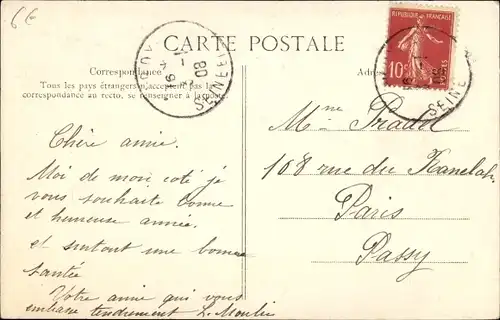 6€
CARTE POSTALE
RÉPUBLIQUE FRANÇAISE
10
POSTES
SEINE
08
SEINE
Correspondance
Tous les pays étrangers n'acceptent pas la
correspondance au recto, se renseigner à la poste.
Chère amie.
Moi de mon coté je
vous souhaite bonne
et heureuse année.
et surtout une bonne
santée
Votre amie qui vous
embrasse tendrement L. Moulin
Mme Pradel
108 rue du Ranelah
Paris
Passy